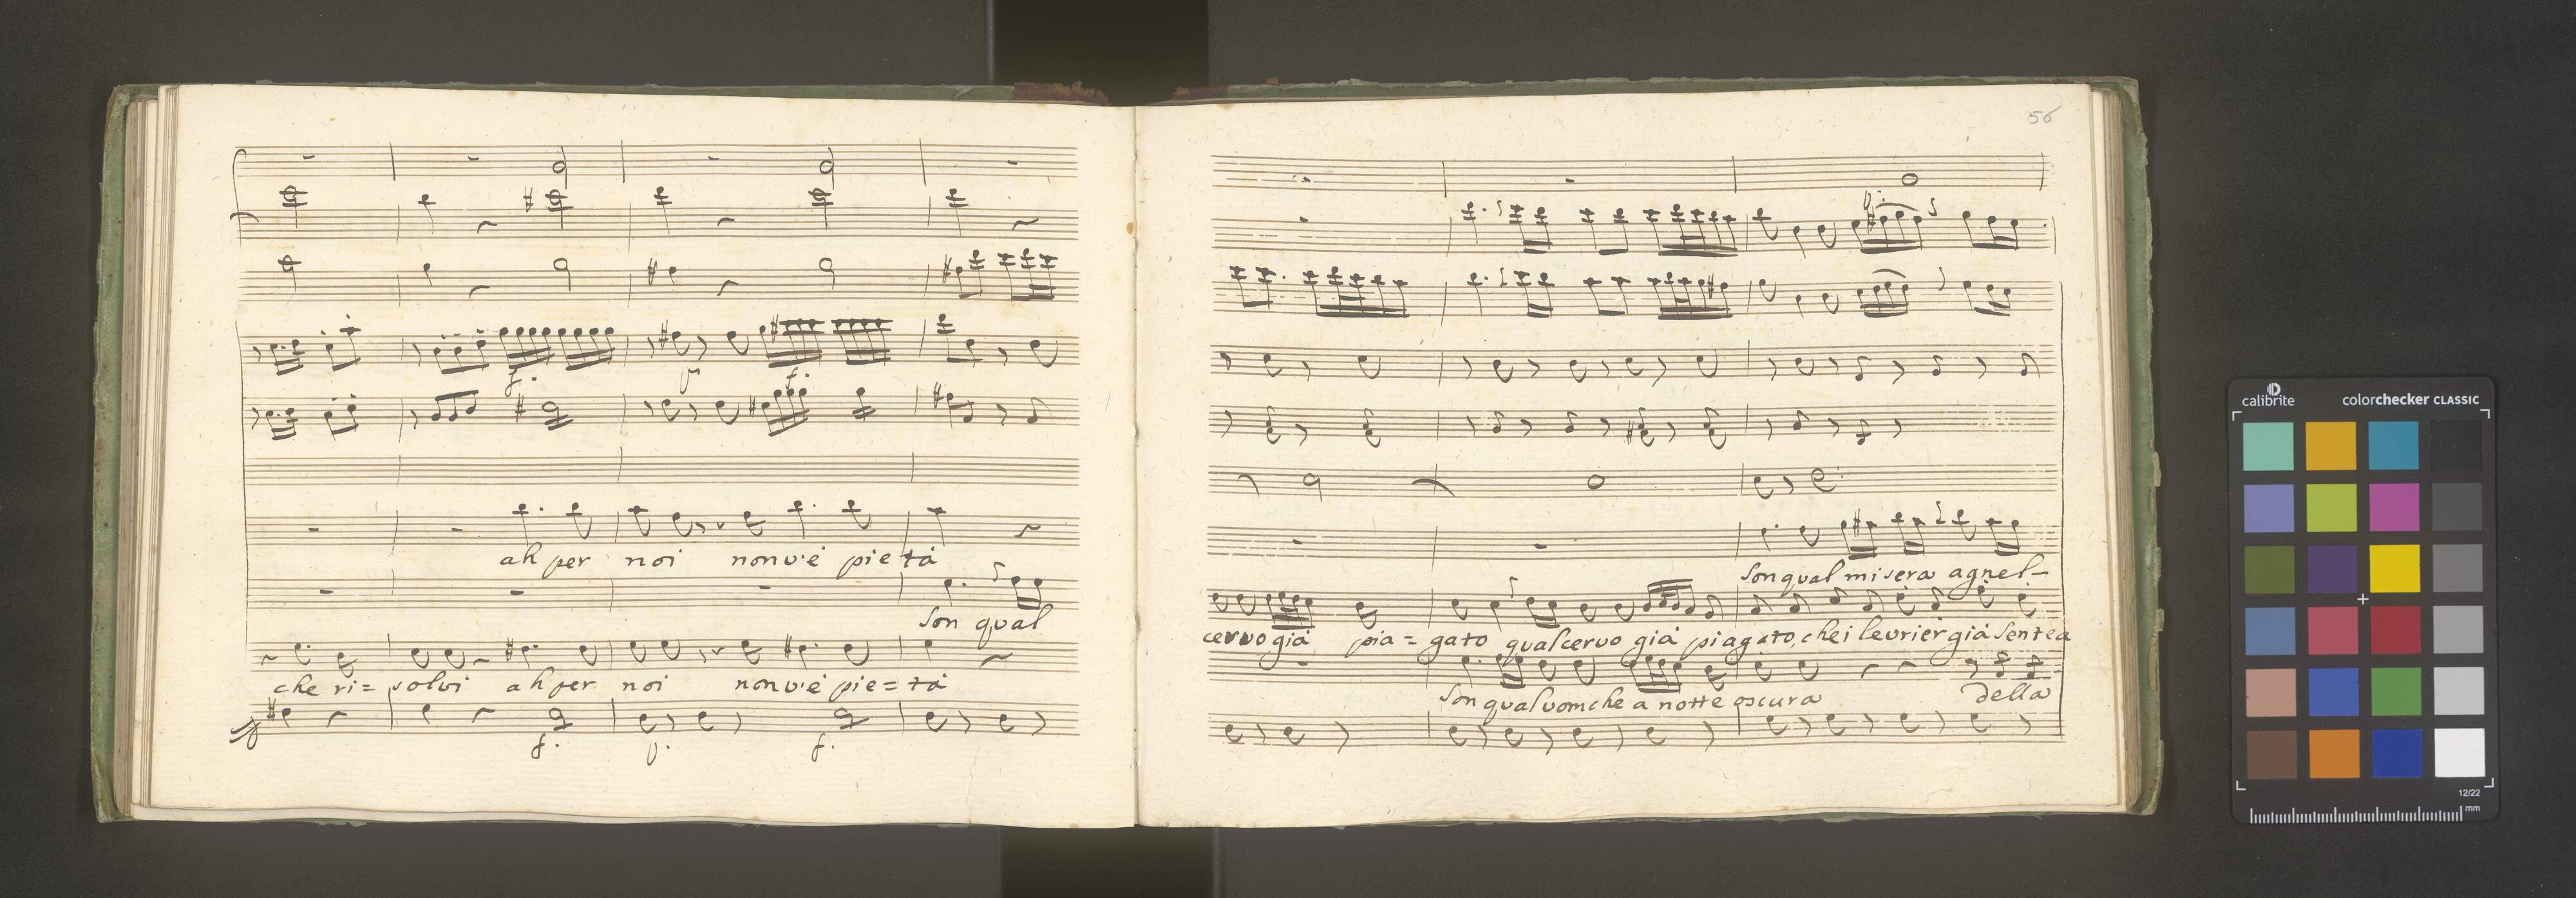 ah per noi non v'è pietà
Son qual
che ri= solvi ah per noi non v'è pie= tà
f. p. f.
f. p. f.
56
Son qual misera agnel-
cervo già pia= gato qual cervo già piagato, che i levrier già sente a
Son qual uom che a notte oscura della
calibrite colorchecker CLASSIC
12/22
mm